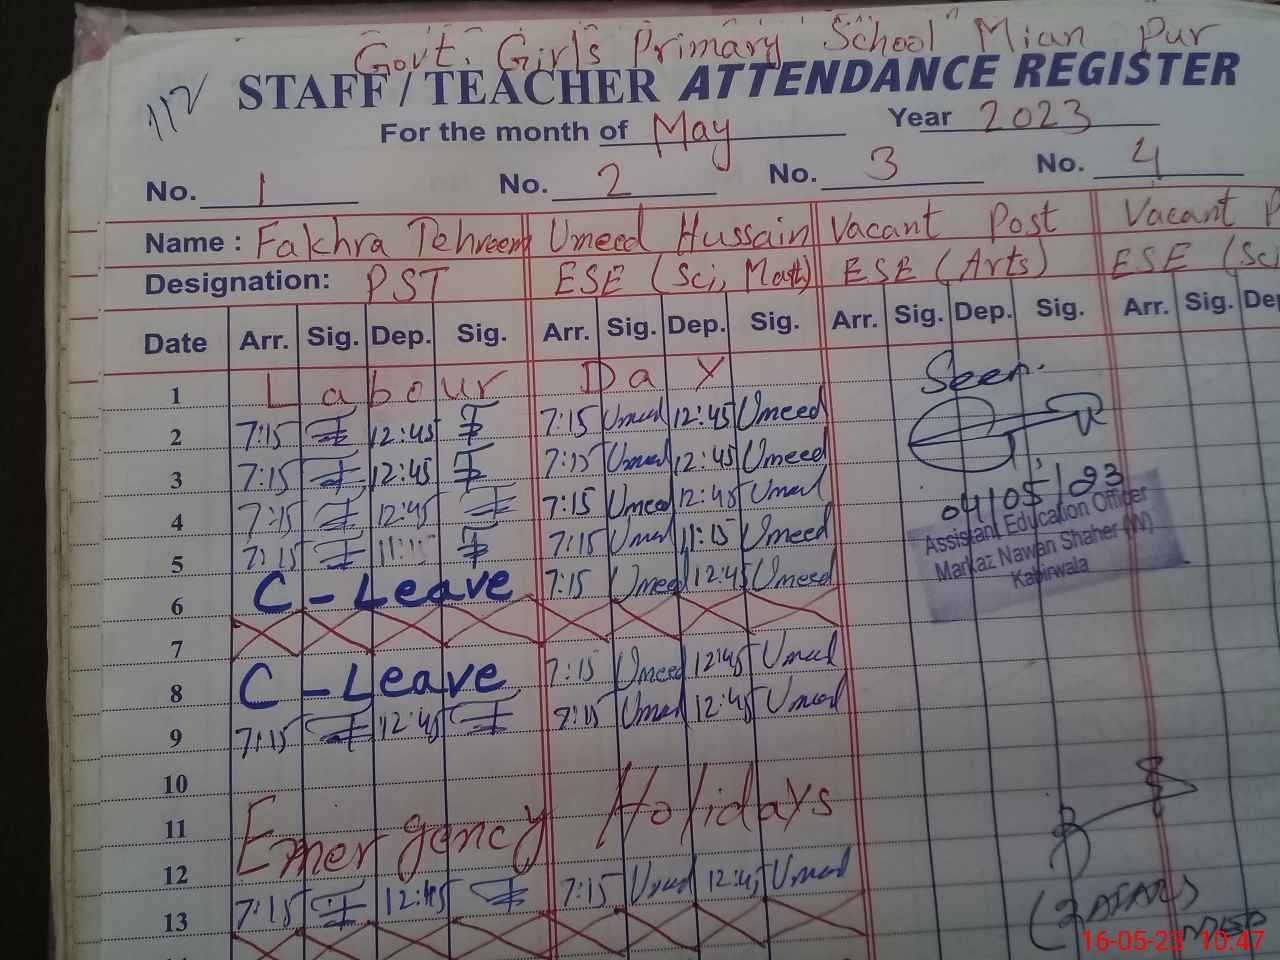 Govt. Girls Primary School Mian Pur
112
STAFF / TEACHER ATTENDANCE REGISTER
For the month of May Year 2023
No. 1 No. 2 No. 3 No. 4
Name : Fakhra Tehreem Umeed Hussain Vacant Post Vacant P
Designation: PST ESE (Sci, Math) ESE (Arts) ESE (Sci
Date Arr. Sig. Dep. Sig. Arr. Sig. Dep. Sig. Arr. Sig. Dep. Sig. Arr. Sig. De
1 Labour Day
Seen.
2 7:15 12:45 7:15 Umeed 12:45 Umeed
3 7:15 12:45 7:15 Umeed 12:45 Umeed
4 7:15 12:45 7:15 Umeed 12:45 Umeed
04/05/23
5 7:15 11:15 7:15 Umeed 11:15 Umeed
Assistant Education Officer
Markaz Nawan Shaher (W)
Kabirwala
6 C-Leave 7:15 Umeed 12:45 Umeed
7
8 C-Leave 7:15 Umeed 12:45 Umeed
9 7:15 12:45 7:15 Umeed 12:45 Umeed
10
11 Emergency Holidays
12
13 7:15 12:45 7:15 Umeed 12:45 Umeed
16-05-23 10:47